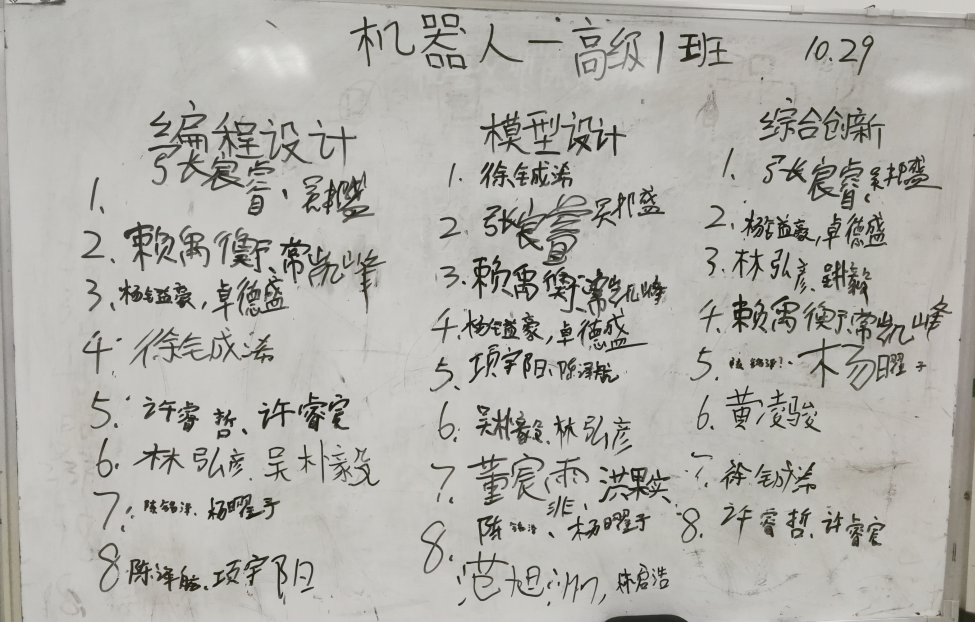 机器人一高级1班 10.29
编程设计
1. 张宸睿、吴邦盛
2. 赖禹衡、常凯峰
3. 杨钰益豪,卓德盛
4. 徐钰成浠
5. 许睿哲、许睿宸
6. 林弘彦 吴朴毅
7. 陈锦泽、杨曜宇
8 陈泽航、项宇阳
模型设计
1. 徐钰成浠
2. 张宸睿 吴邦盛
3. 赖禹衡、常凯峰
4. 杨钰益豪,卓德盛
5. 项宇阳、陈泽航
6. 吴朴毅、林弘彦
7. 董宸雨非、洪果实
8. 陈 、杨曜宇
范旭 ,林启浩
综合创新
1. 张宸睿、吴邦盛
2. 杨钰益豪,卓德盛
3. 林弘彦、吴朴毅
4. 赖禹衡、常凯峰
5. 杨曜宇
6. 黄凌骏
7. 徐钰成浠
8. 许睿哲、许睿宸